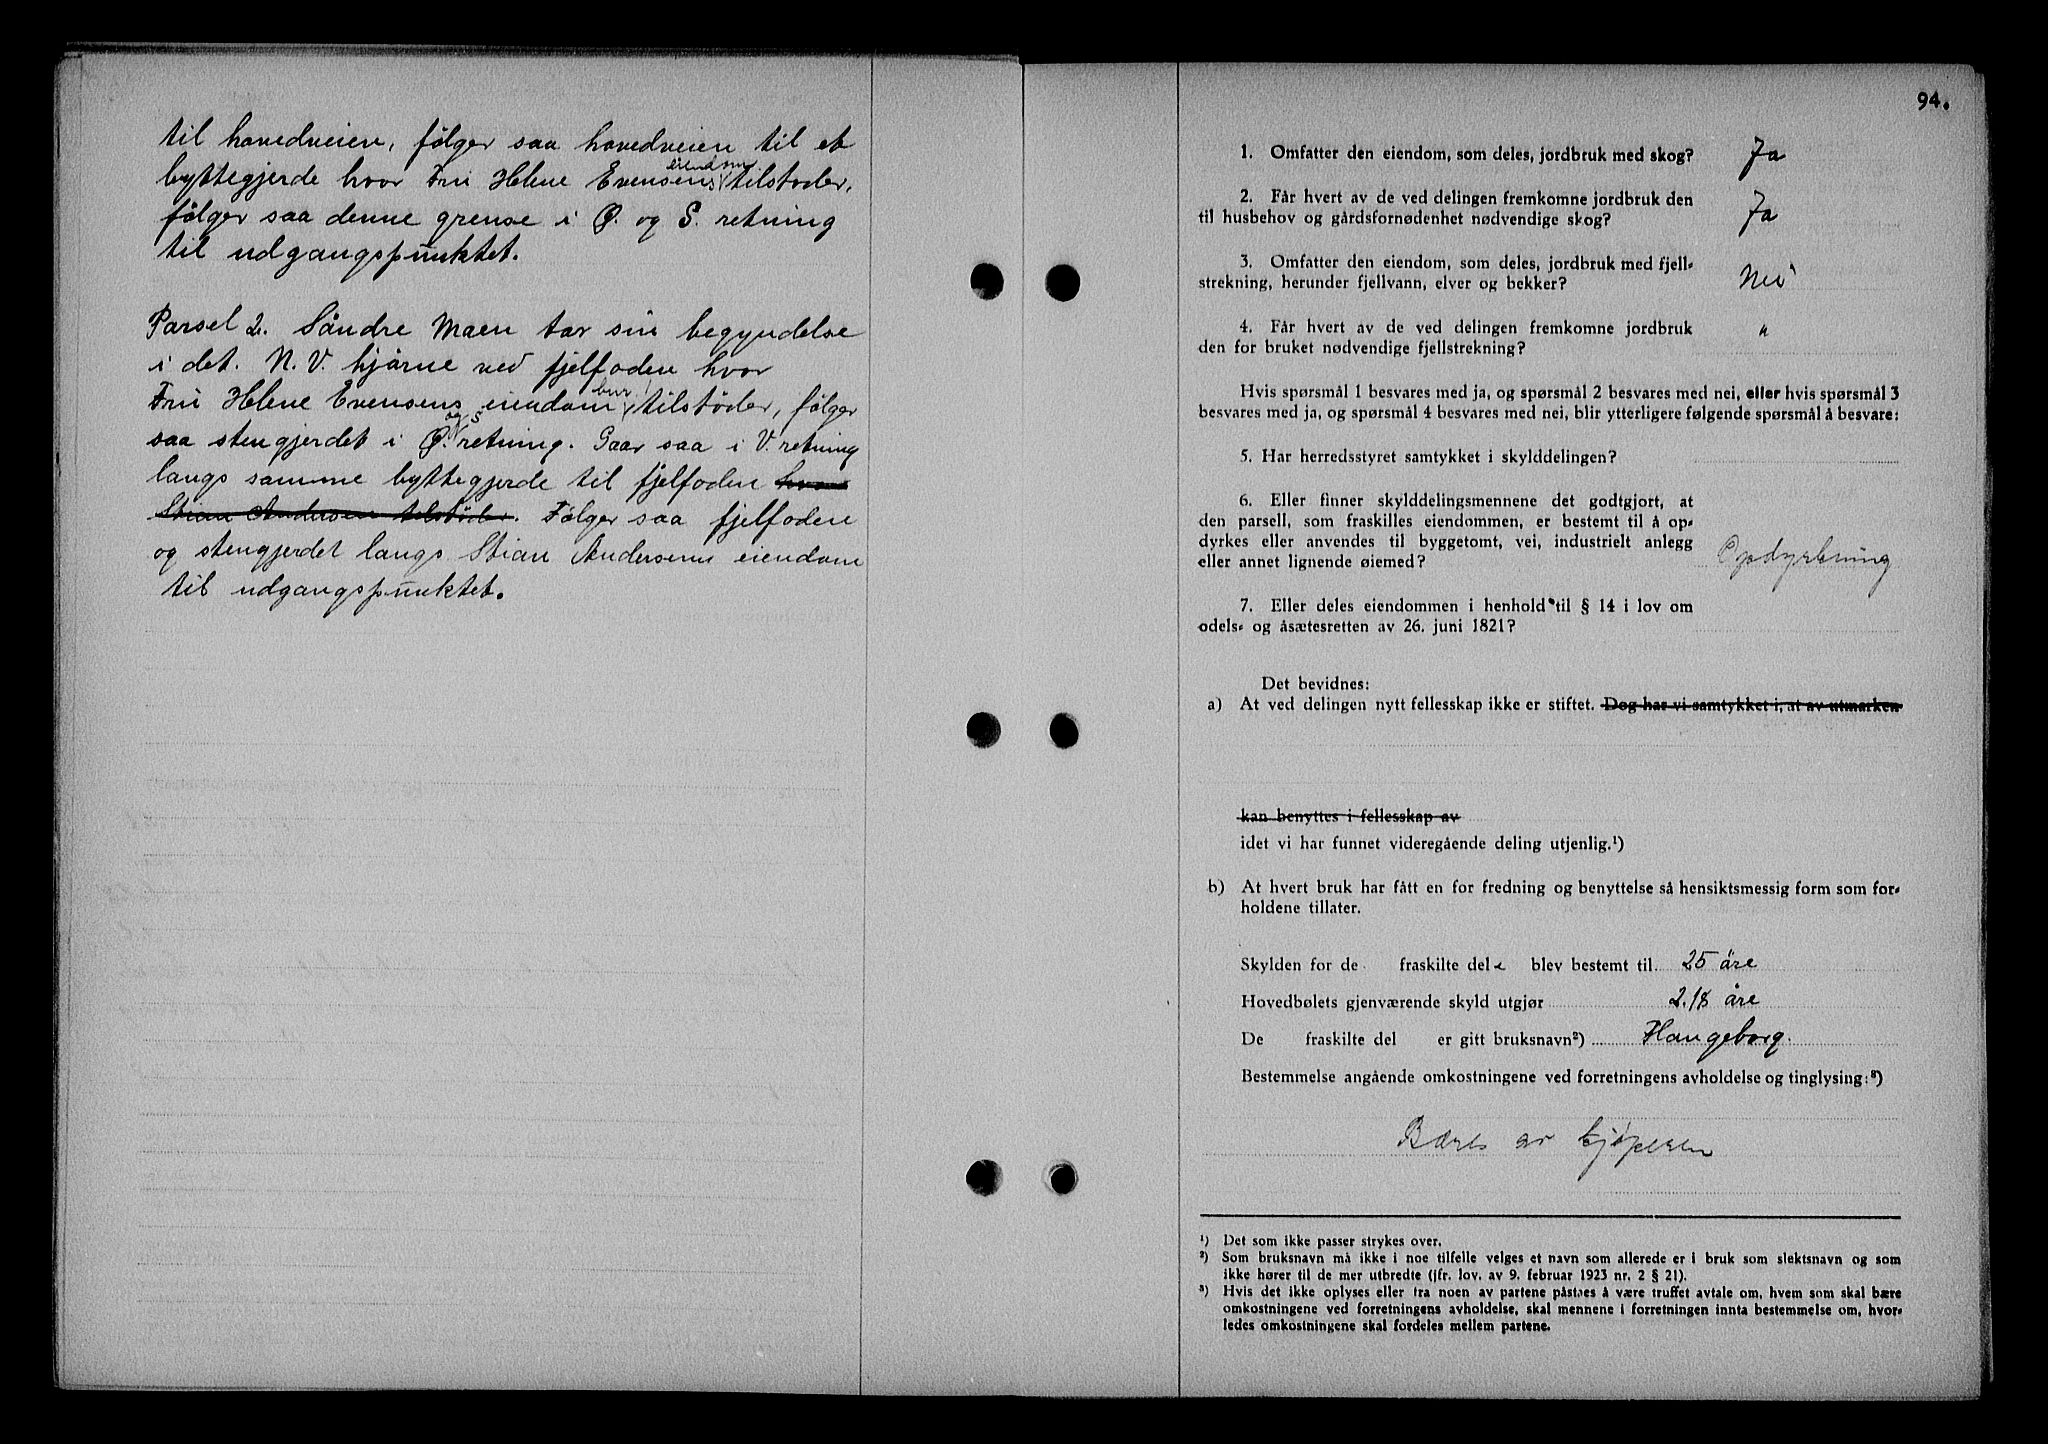 til hovedveien, følger saa hovedveien til et
byttegjerde hvor Fru Helene Evensens eiendom tilstøder,
følger saa denne grense i Ø. og S. retning
til udgangspunktet.
Parsel 2. Søndre Maen tar sin begyndelse
i det. N. V. hjørne ved fjelfoden hvor
Fru Helene Evensens eiendom tilstøder, følger
saa stengjerdet i Ø. og S retning. Gaar saa i V. retning
langs samme byttegjerde til fjelfoden hvor
Stian Andersen tilstøder. Følger saa fjelfoden
og stengjerdet langs Stian Andersens eiendom
til udgangspunktet.
94.
1. Omfatter den eiendom, som deles, jordbruk med skog? Ja
2. Får hvert av de ved delingen fremkomne jordbruk den
til husbehov og gårdsfornødenhet nødvendige skog? Ja
3. Omfatter den eiendom, som deles, jordbruk med fjell-
strekning, herunder fjellvann, elver og bekker? Nei
4. Får hvert av de ved delingen fremkomne jordbruk "
den for bruket nødvendige fjellstrekning?
Hvis spørsmål 1 besvares med ja, og spørsmål 2 besvares med nei, eller hvis spørsmål 3
besvares med ja, og spørsmål 4 besvares med nei, blir ytterligere følgende spørsmål å besvare:
5. Har herredsstyret samtykket i skylddelingen?
6. Eller finner skylddelingsmennene det godtgjort, at
den parsell, som fraskilles eiendommen, er bestemt til å op-
dyrkes eller anvendes til byggetomt, vei, industrielt anlegg
eller annet lignende øiemed? Opdyrkning
7. Eller deles eiendommen i henhold til § 14 i lov om
odels- og åsætesretten av 26. juni 1821?
Det bevidnes:
a) At ved delingen nytt fellesskap ikke er stiftet. Dog har vi samtykket i, at av utmarken
kan benyttes i fellesskap av
idet vi har funnet videregående deling utjenlig.¹)
b) At hvert bruk har fått en for fredning og benyttelse så hensiktsmessig form som for-
holdene tillater.
Skylden for de fraskilte dele blev bestemt til 25 øre
Hovedbølets gjenværende skyld utgjør 2.18 øre
De fraskilte del er gitt bruksnavn²) Haugeborg.
Bestemmelse angående omkostningene ved forretningens avholdelse og tinglysing:³)
Bæres av kjøperen
¹) Det som ikke passer strykes over.
²) Som bruksnavn må ikke i noe tilfelle velges et navn som allerede er i bruk som slektsnavn og som
ikke hører til de mer utbredte (jfr. lov. av 9. februar 1923 nr. 2 § 21).
³) Hvis det ikke oplyses eller fra noen av partene påstaes å være truffet avtale om, hvem som skal bære
omkostningene ved forretningens avholdelse, skal mennene i forretningen innta bestemmelse om, hvor-
ledes omkostningene skal fordeles mellem partene.